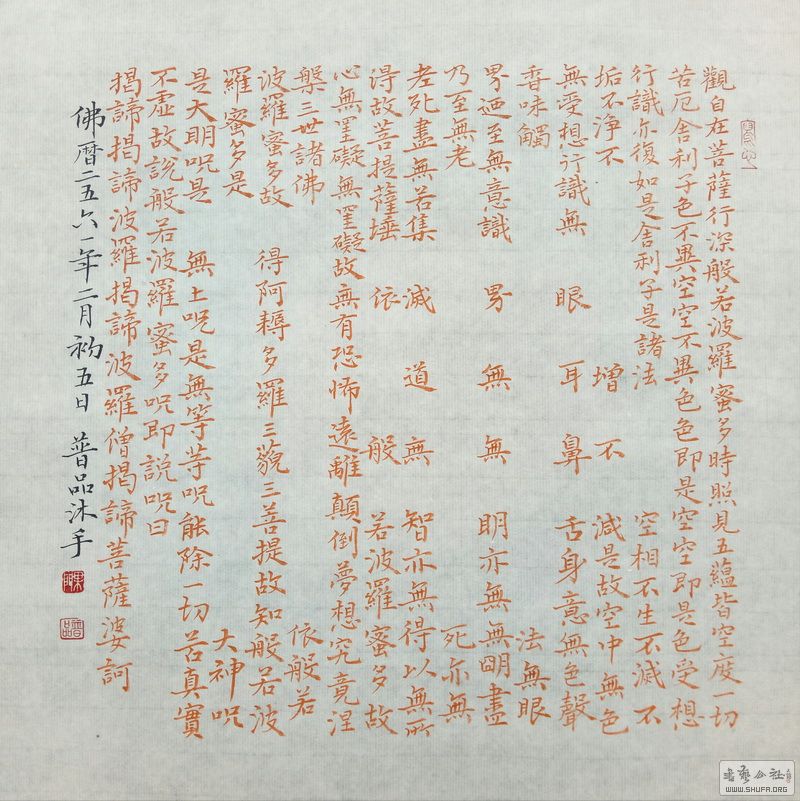 寫心
觀自在菩薩行深般若波羅蜜多時照見五蘊皆空度一切
苦厄舍利子色不異空空不異色色即是空空即是色受想
行識亦復如是舍利子是諸法 空相不生不滅不
垢不淨不 增 不 減是故空中無色
無受想行識無 眼 耳 鼻 舌身意無色聲
香味觸 法無眼
界迺至無意識 界 無 無 明亦無無明盡
乃至無老 死亦無
老死盡無苦集 滅 道 無 智亦無得以無所
得故菩提薩埵 依 般 若波羅蜜多故
心無罣礙無罣礙故無有恐怖遠離顛倒夢想究竟涅
槃三世諸佛 依般若
波羅蜜多故 得阿耨多羅三藐三菩提故知般若波
羅蜜多是 大神呪
是大明呪是 無上呪是無等等呪能除一切苦真實
不虛故說般若波羅蜜多呪即說呪曰
揭諦揭諦波羅揭諦波羅僧揭諦菩薩婆訶
佛曆二五六一年二月初五日 普品沐手
普品
書藝公社
WWW.SHUFA.ORG